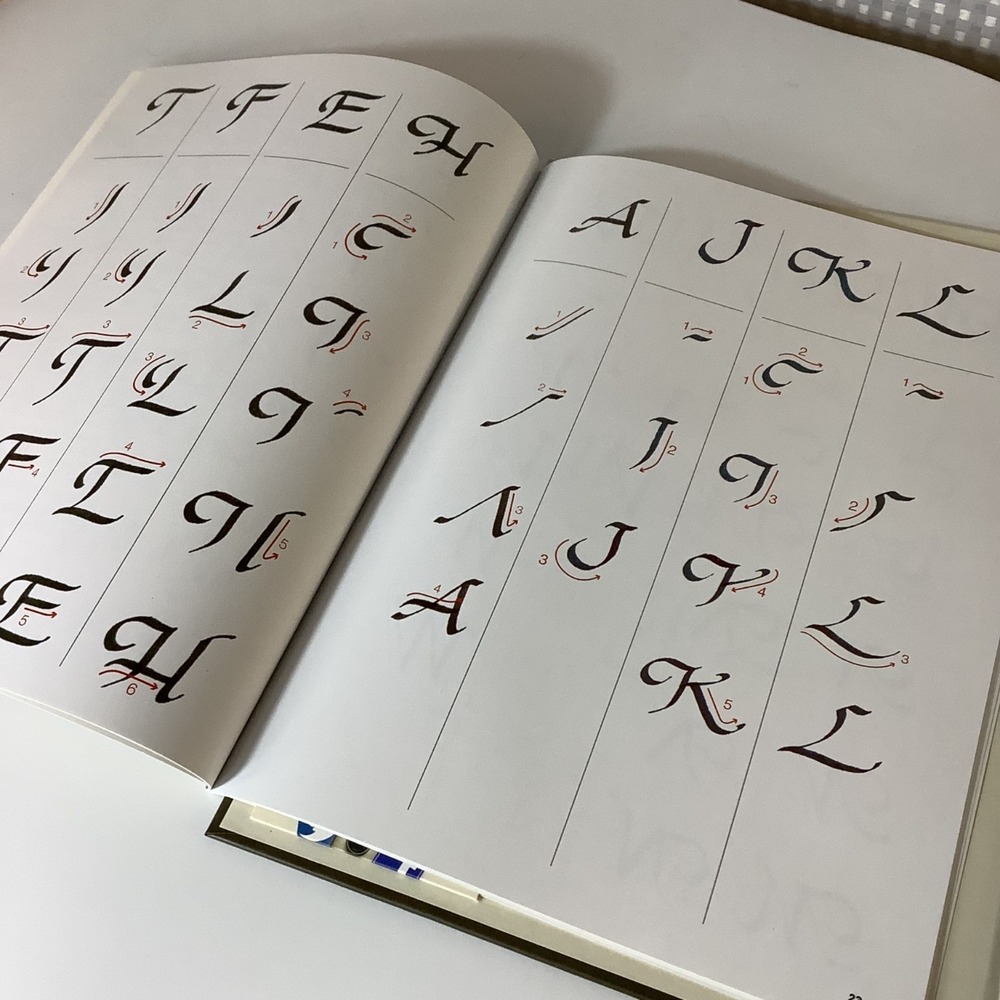 T F E H
1 1 1 1 2
2 2 2 3
3 3 3 4
4 4 5
5 6
A J K L
1 1 1 2 1
2 2 3 2
3 3 4 3
4 5